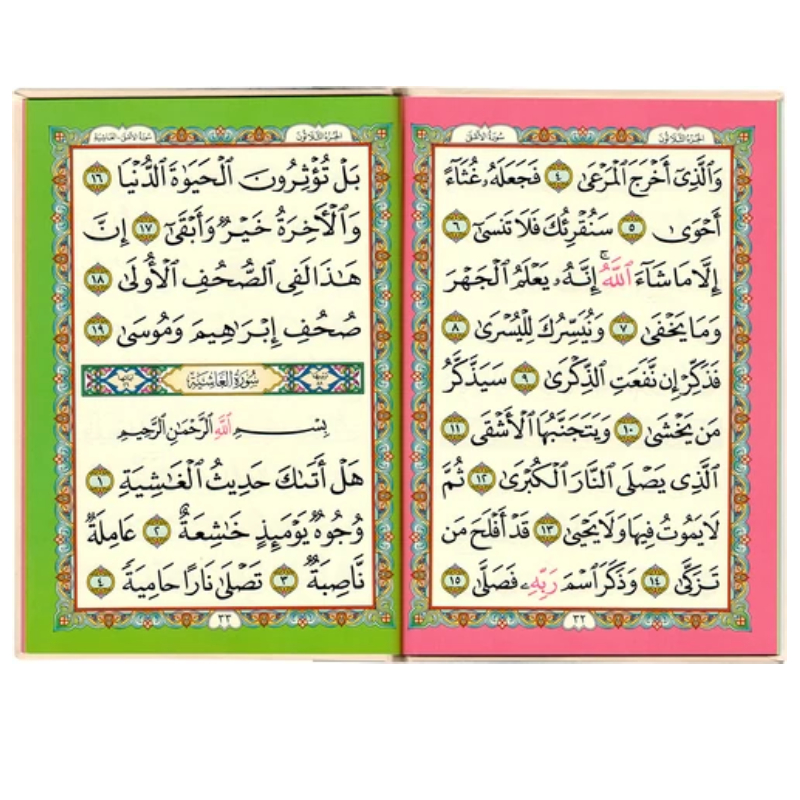 سُورَةُ الْأَعْلَىٰ
الجُزْءُ الثَّلَاثُونَ
وَالَّذِىٓ أَخْرَجَ الْمَرْعَىٰ ٤ فَجَعَلَهُۥ غُثَآءً
أَحْوَىٰ ٥ سَنُقْرِئُكَ فَلَا تَنسَىٰٓ ٦
إِلَّا مَا شَآءَ اللَّهُ ۚ إِنَّهُۥ يَعْلَمُ الْجَهْرَ
وَمَا يَخْفَىٰ ٧ وَنُيَسِّرُكَ لِلْيُسْرَىٰ ٨
فَذَكِّرْ إِن نَّفَعَتِ الذِّكْرَىٰ ٩ سَيَذَّكَّرُ
مَن يَخْشَىٰ ١٠ وَيَتَجَنَّبُهَا الْأَشْقَى ١١
الَّذِى يَصْلَى النَّارَ الْكُبْرَىٰ ١٢ ثُمَّ
لَا يَمُوتُ فِيهَا وَلَا يَحْيَىٰ ١٣ قَدْ أَفْلَحَ مَن
تَزَكَّىٰ ١٤ وَذَكَرَ اسْمَ رَبِّهِۦ فَصَلَّىٰ ١٥
٣٢
الجُزْءُ الثَّلَاثُونَ
سُورَةُ الْأَعْلَىٰ - الغَاشِيَة
بَلْ تُؤْثِرُونَ الْحَيَوٰةَ الدُّنْيَا ١٦
وَالْءَاخِرَةُ خَيْرٌ وَأَبْقَىٰٓ ١٧ إِنَّ
هَـٰذَا لَفِى الصُّحُفِ الْأُولَىٰ ١٨
صُحُفِ إِبْرَٰهِيمَ وَمُوسَىٰ ١٩
سُورَةُ الْغَاشِيَةِ
بِسْمِ اللَّهِ الرَّحْمَـٰنِ الرَّحِيمِ
هَلْ أَتَىٰكَ حَدِيثُ الْغَـٰشِيَةِ ١
وُجُوهٌ يَوْمَئِذٍ خَـٰشِعَةٌ ٢ عَامِلَةٌ
نَّاصِبَةٌ ٣ تَصْلَىٰ نَارًا حَامِيَةً ٤
٣٣